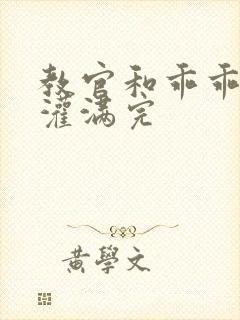 教官和乖乖
灌满完
黄學文